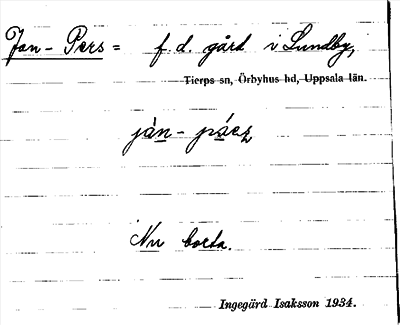 Jan-Pers = f. d. gård i Lundby,
Tierps sn, Örbyhus hd, Uppsala län.
jàn-
Nu borta.
Ingegärd Isaksson 1934.